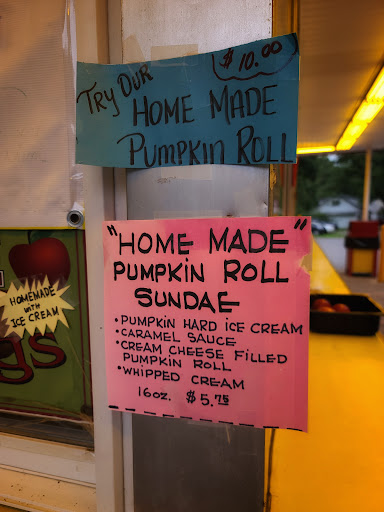 $10.00
TRY OUR
HOME MADE
PUMPKIN ROLL
"HOME MADE"
PUMPKIN ROLL
SUNDAE
• PUMPKIN HARD ICE CREAM
• CARAMEL SAUCE
• CREAM CHEESE FILLED
PUMPKIN ROLL
• WHIPPED CREAM
16oz. $5.75
HOMEMADE
with
ICE CREAM
gs